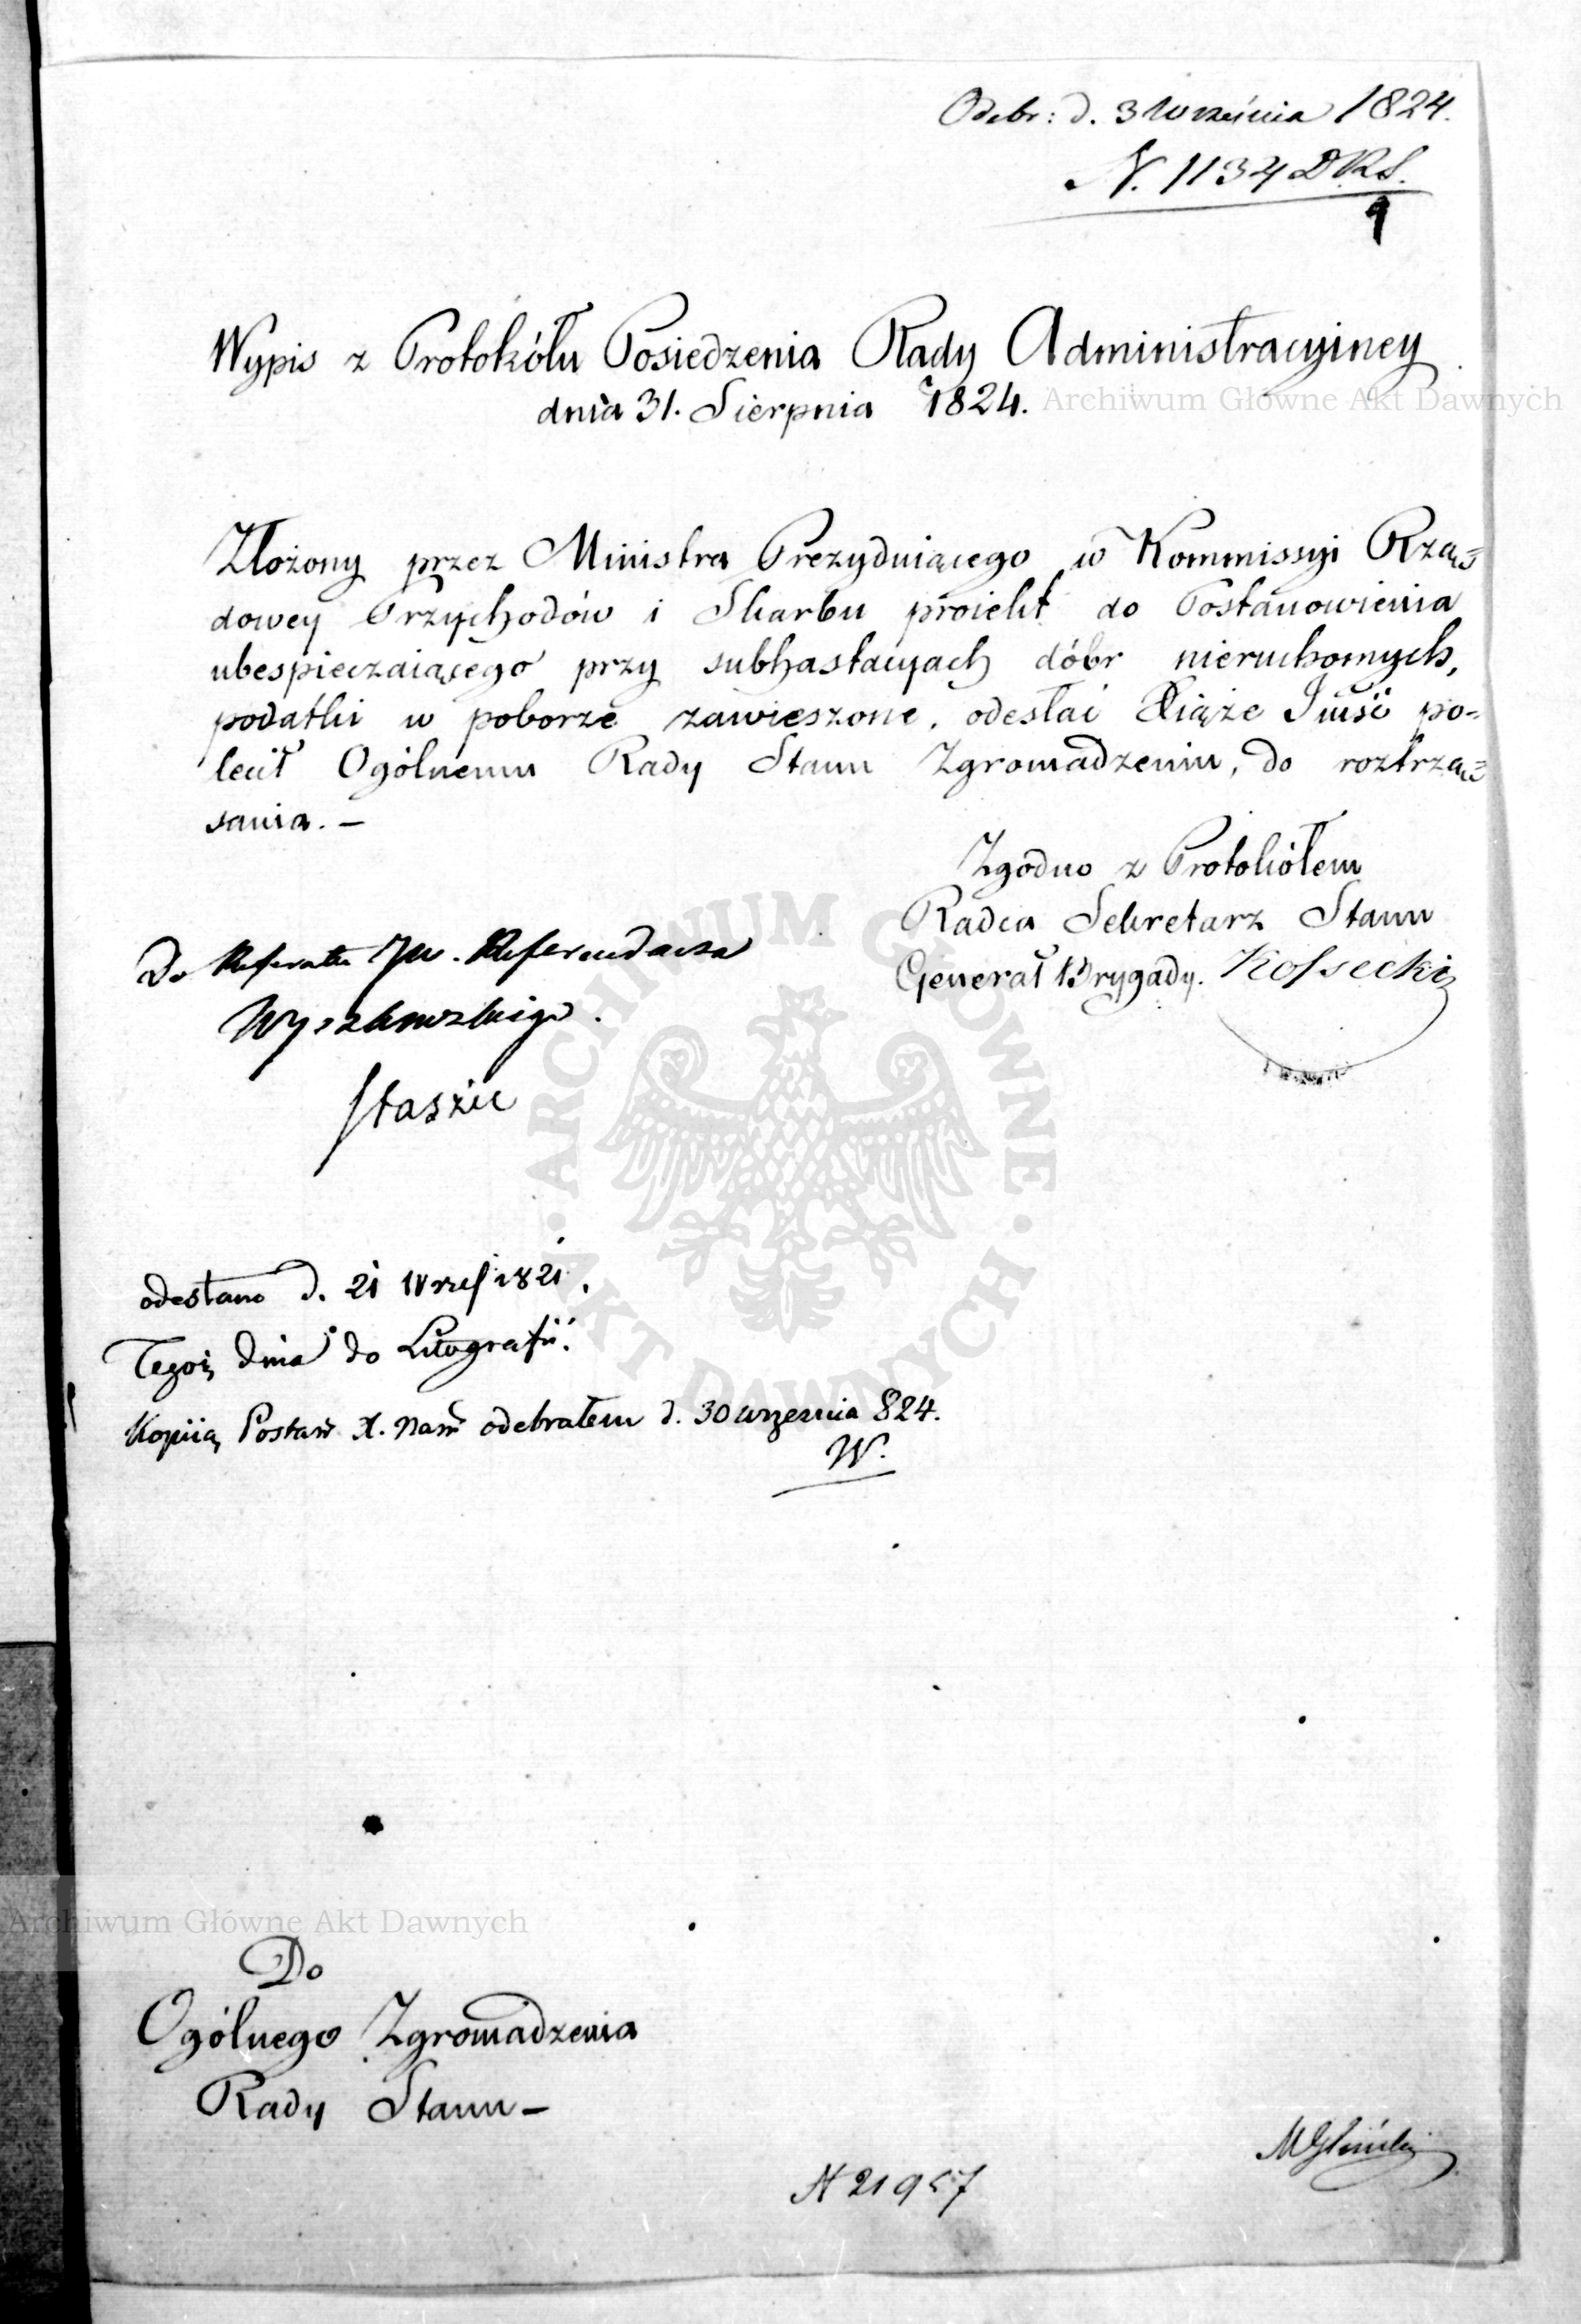 Odebr: d. 3 Września 1824.
N. 1134 D.R.S.
9
Wypis z Protokółu Posiedzenia Rady Administracyiney
dnia 31. Sierpnia 1824.
Archiwum Główne Akt Dawnych
Złożony przez Ministra Prezyduiącego w Kommissyi Rzą=
dowey Przychodów i Skarbu proiekt do Postanowienia
ubespieczaiącego przy subhastacyach dóbr nieruchomych,
podatki w poborze zawieszone, odesłać Xiąże Jmść po=
lecił Ogólnemu Rady Stanu Zgromadzeniu, do roztrzą=
sania. —
Zgodno z Protokółem
Radca Sekretarz Stanu
Generał Brygady. Kossecki
Do Referatu JW. Referendarza
Wyczechowskiego.
Staszic
ARCHIWUM GŁÓWNE AKT DAWNYCH
odesłano d. 21 Wrześ 1821.
Tegoż dnia do Litografii.
Kopiią Postan X. Nam odebrałem d. 30 września 824.
W.
Archiwum Główne Akt Dawnych
Do
Ogólnego Zgromadzenia
Rady Stanu —
MGliński
N 21957